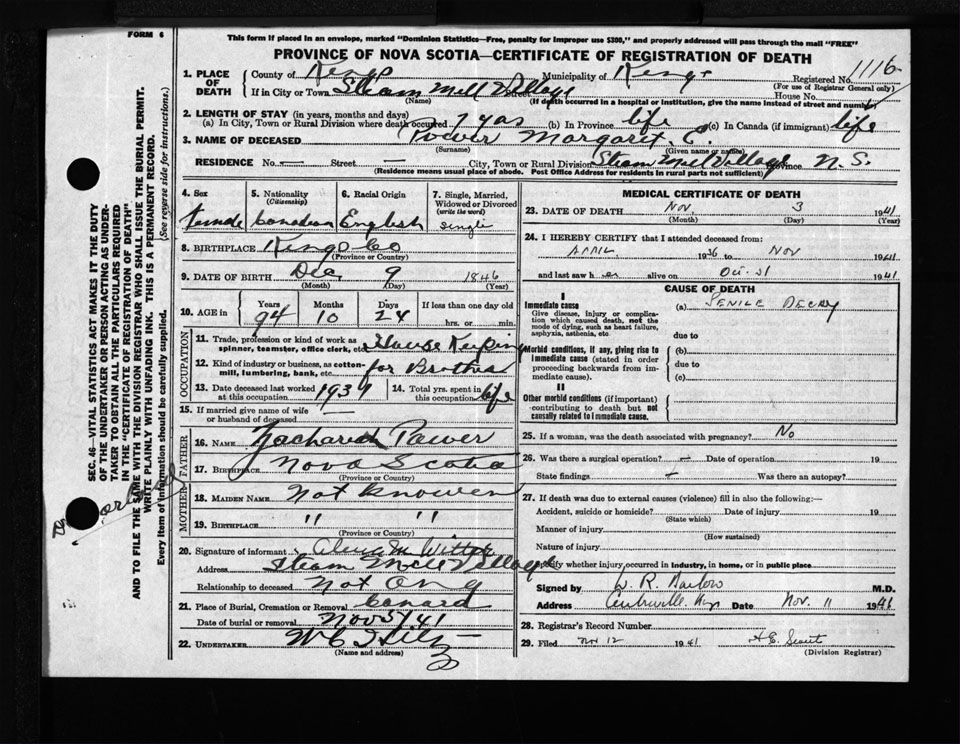 FORM 6
This form if placed in an envelope, marked "Dominion Statistics—Free, penalty for improper use $300," and properly addressed will pass through the mail "FREE"
PROVINCE OF NOVA SCOTIA—CERTIFICATE OF REGISTRATION OF DEATH
1. PLACE OF DEATH County of Kings Municipality of Kings Registered No. 1116
(For use of Registrar General only)
If in City or Town Steam Mill Village Street House No.
(Name) (If death occurred in a hospital or institution, give the name instead of street and number)
2. LENGTH OF STAY (in years, months and days)
(a) In City, Town or Rural Division where death occurred 7 yas (b) In Province life (c) In Canada (if immigrant) life
3. NAME OF DECEASED Power Margaret C.
(Surname) (Given name or names)
RESIDENCE No. — Street — City, Town or Rural Division Steam Mill Village Province N.S.
(Residence means usual place of abode. Post Office Address for residents in rural parts not sufficient)
4. Sex 5. Nationality 6. Racial Origin 7. Single, Married, Widowed or Divorced
(Citizenship) (write the word)
Female Canadian English single
8. BIRTHPLACE Kings Co
(Province or Country)
9. DATE OF BIRTH Dec 9 1846
(Month) (Day) (Year)
10. AGE in Years Months Days If less than one day old
94 10 24 hrs. or min.
OCCUPATION
11. Trade, profession or kind of work as spinner, teamster, office clerk, etc. House Keeping
12. Kind of industry or business, as cotton-mill, lumbering, bank, etc. for Brother
13. Date deceased last worked at this occupation 1937 14. Total yrs. spent in this occupation life
15. If married give name of wife or husband of deceased —
FATHER
16. NAME Zachariah Power
17. BIRTHPLACE Nova Scotia
(Province or Country)
MOTHER
18. MAIDEN NAME Not Knowen
19. BIRTHPLACE " "
(Province or Country)
20. Signature of informant
Address Steam Mill Village
Relationship to deceased Not Any
21. Place of Burial, Cremation or Removal Canard
Date of burial or removal Nov 5/41
22. UNDERTAKER
(Name and address)
MEDICAL CERTIFICATE OF DEATH
23. DATE OF DEATH Nov. 3 1941
(Month) (Day) (Year)
24. I HEREBY CERTIFY that I attended deceased from:
April 1936 to Nov 1941
and last saw her alive on Oct. 31 1941
CAUSE OF DEATH
I
Immediate cause (a) SENILE DECAY
Give disease, injury or complication which caused death, not the mode of dying, such as heart failure, asphyxia, asthenia, etc. due to
Morbid conditions, if any, giving rise to immediate cause (stated in order proceeding backwards from immediate cause). (b)
due to
(c)
II
Other morbid conditions (if important) contributing to death but not causally related to immediate cause.
25. If a woman, was the death associated with pregnancy? No
26. Was there a surgical operation? — Date of operation 19
State findings — Was there an autopsy?
27. If death was due to external causes (violence) fill in also the following:—
Accident, suicide or homicide? Date of injury 19
(State which)
Manner of injury
(How sustained)
Nature of injury
Specify whether injury occurred in industry, in home, or in public place
Signed by M.D.
Address Centreville, Kings Date Nov. 11 1941
28. Registrar's Record Number
29. Filed Nov 12 1941
(Division Registrar)
SEC. 46—VITAL STATISTICS ACT MAKES IT THE DUTY
OF THE UNDERTAKER OR PERSON ACTING AS UNDER-
TAKER TO OBTAIN ALL THE PARTICULARS REQUIRED
IN THE "CERTIFICATE OF REGISTRATION OF DEATH"
AND TO FILE THE SAME WITH THE DIVISION REGISTRAR WHO SHALL ISSUE THE BURIAL PERMIT.
WRITE PLAINLY WITH UNFADING INK. THIS IS A PERMANENT RECORD.
Every item of information should be carefully supplied. (See reverse side for instructions.)